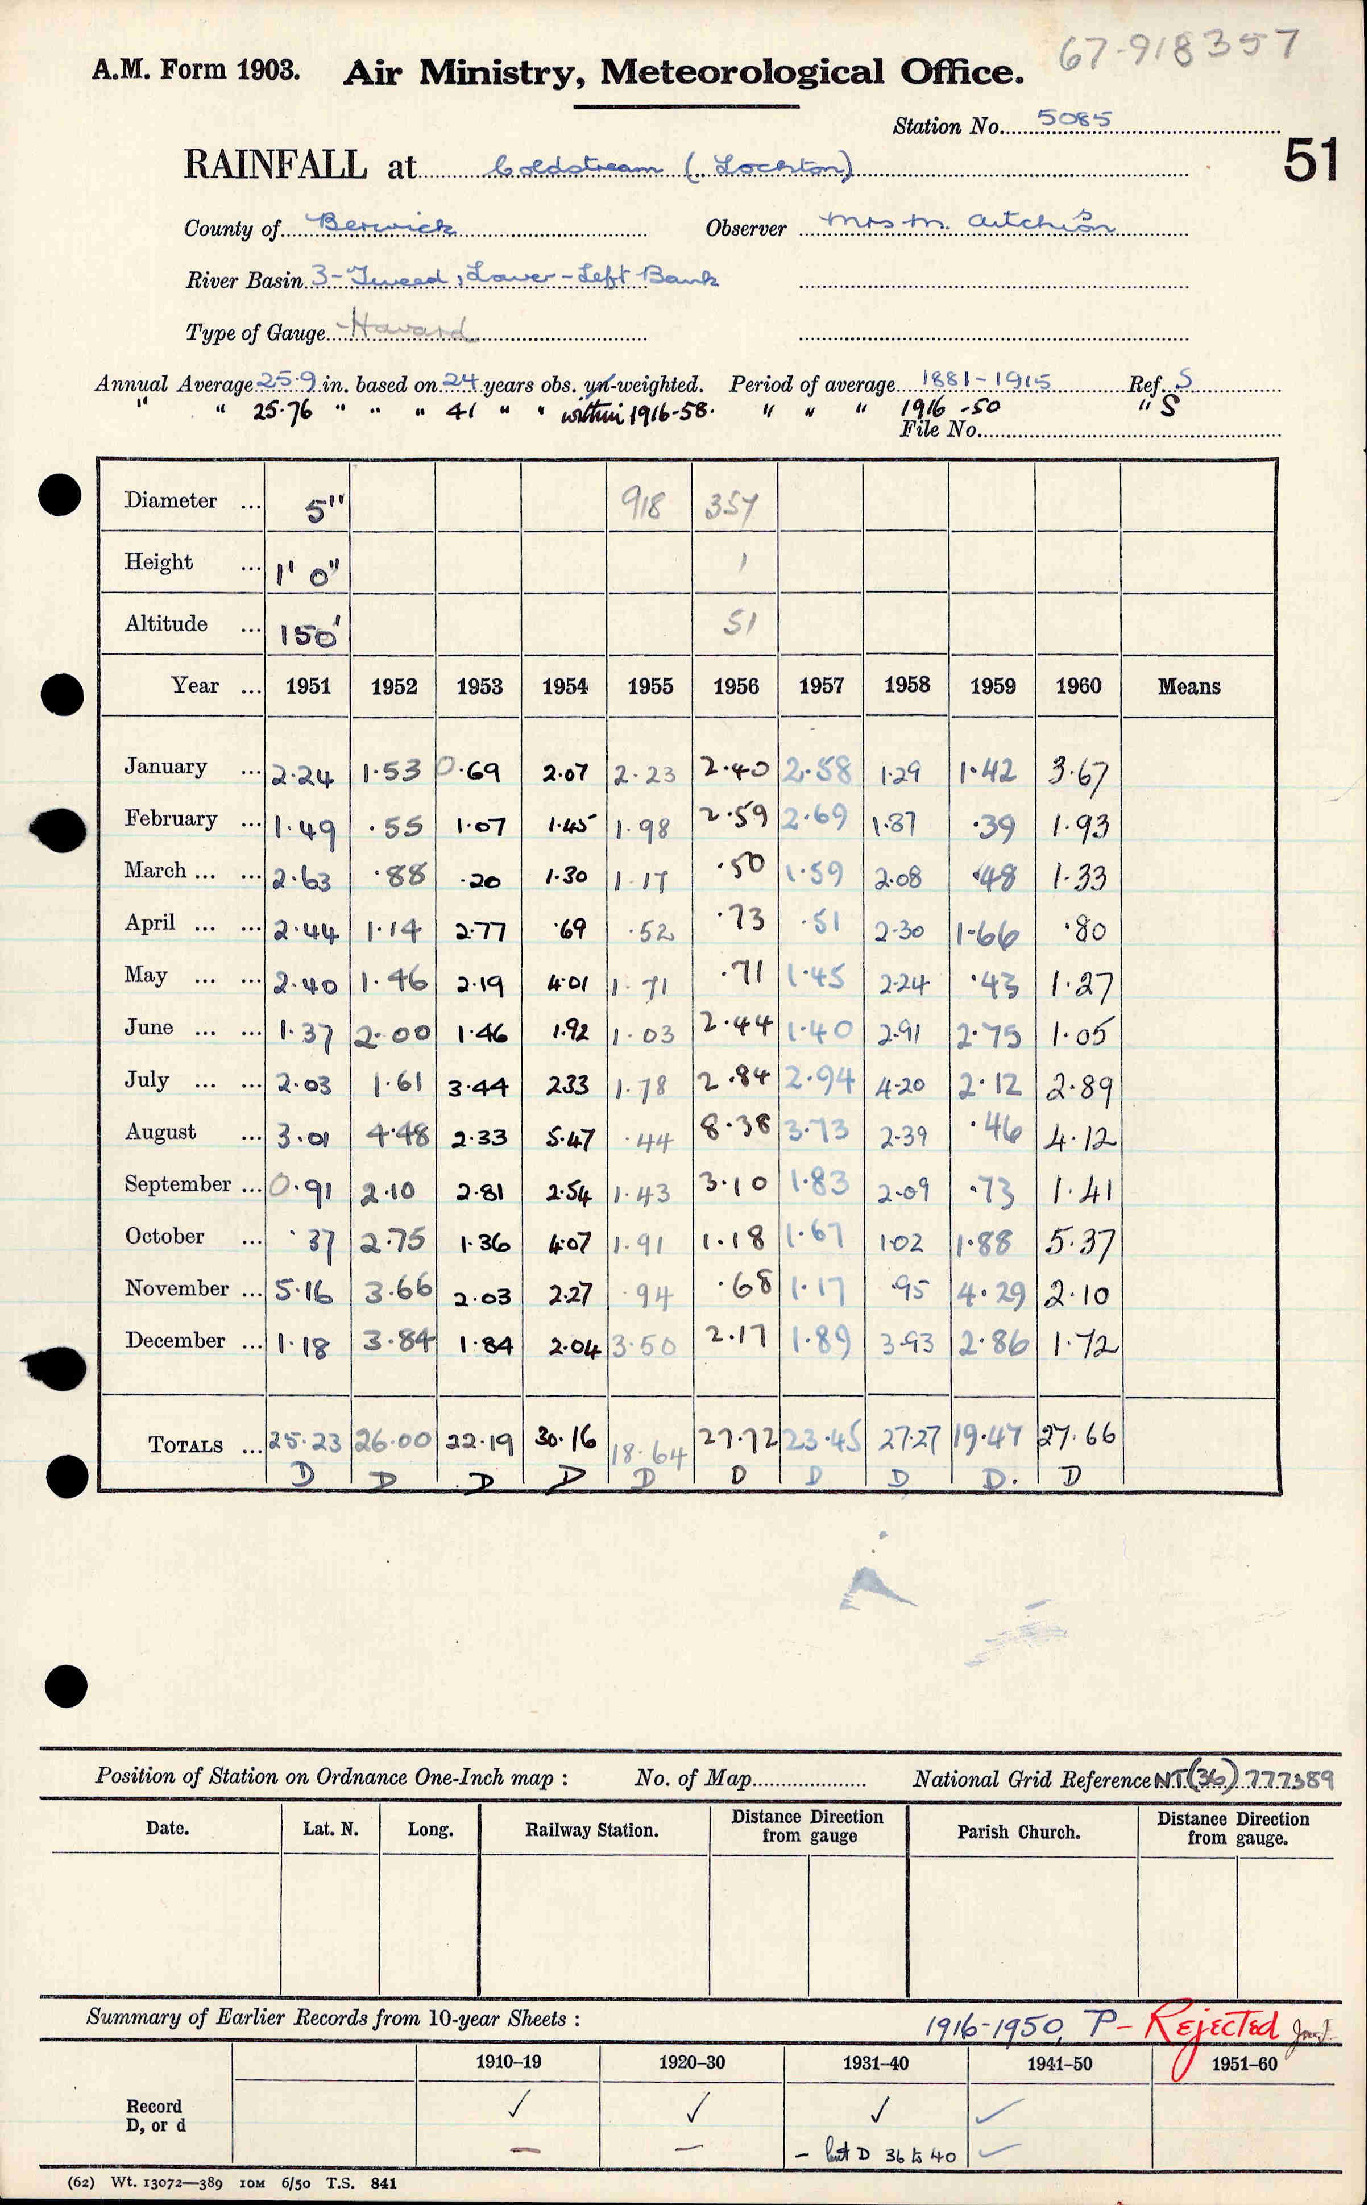 67-918357
A.M. Form 1903. Air Ministry, Meteorological Office.
Station No. 5085
51
RAINFALL at Coldstream (Lochton)
County of Berwick Observer Mrs M. Aitchison
River Basin 3-Tweed, Lower-Left Bank
Type of Gauge Havard
Annual Average 25.9 in. based on 24 years obs. un-weighted. Period of average 1881-1915 Ref. S
" " 25.76 " " " 41 " " within 1916-58. " " " 1916-50 " S
File No.
Diameter ... 5" 918 357
Height ... 1' 0" 1
Altitude ... 150' 51
Year ... 1951 1952 1953 1954 1955 1956 1957 1958 1959 1960 Means
January ... 2.24 1.53 0.69 2.07 2.23 2.40 2.58 1.29 1.42 3.67
February ... 1.49 .55 1.07 1.45 1.98 2.59 2.69 1.87 .39 1.93
March ... ... 2.63 .88 .20 1.30 1.17 .50 1.59 2.08 .48 1.33
April ... ... 2.44 1.14 2.77 .69 .52 .73 .51 2.30 1.66 .80
May ... ... 2.40 1.46 2.19 4.01 1.71 .71 1.45 2.24 .43 1.27
June ... ... 1.37 2.00 1.46 1.92 1.03 2.44 1.40 2.91 2.75 1.05
July ... ... 2.03 1.61 3.44 2.33 1.78 2.84 2.94 4.20 2.12 2.89
August ... 3.01 4.48 2.33 5.47 .44 8.38 3.73 2.39 .46 4.12
September ... 0.91 2.10 2.81 2.54 1.43 3.10 1.83 2.09 .73 1.41
October ... .37 2.75 1.36 4.07 1.91 1.18 1.67 1.02 1.88 5.37
November ... 5.16 3.66 2.03 2.27 .94 .68 1.17 .95 4.29 2.10
December ... 1.18 3.84 1.84 2.04 3.50 2.17 1.89 3.93 2.86 1.72
TOTALS ... 25.23 26.00 22.19 30.16 18.64 27.72 23.45 27.27 19.47 27.66
D D D D D D D D D. D
Position of Station on Ordnance One-Inch map : No. of Map National Grid Reference NT(36) 777389
Date. Lat. N. Long. Railway Station. Distance Direction from gauge Parish Church. Distance Direction from gauge.
Summary of Earlier Records from 10-year Sheets : 1916-1950, P- Rejected
1910-19 1920-30 1931-40 1941-50 1951-60
Record ✓ ✓ ✓ ✓
D, or d — — - but D 36 to 40 ✓
(62) Wt. 13072—389 10M 6/50 T.S. 841